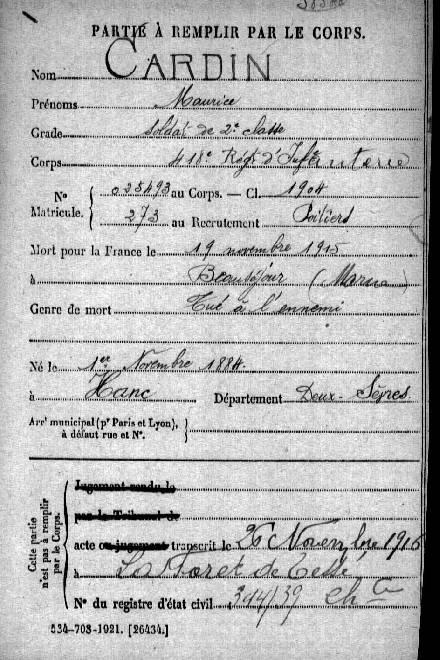 PARTIE À REMPLIR PAR LE CORPS.
Nom CARDIN
Prénoms Maurice
Grade Soldat de 2e classe
Corps 418e Régt d'Infanterie
No Matricule. { 025493 au Corps. — Cl. 1904
273 au Recrutement Poitiers
Mort pour la France le 19 novembre 1915
à Beauséjour (Marne)
Genre de mort Tué à l'ennemi
Né le 1er Novembre 1884.
à Hanc Département Deux-Sèvres
Arrt municipal (pr Paris et Lyon), à défaut rue et No.
Cette partie n'est pas à remplir par le Corps.
Jugement rendu le
par le Tribunal de
acte ou jugement transcrit le 26 Novembre 1916
à La Foret de Tessé
No du registre d'état civil 344/39
534-708-1921. [26434.]